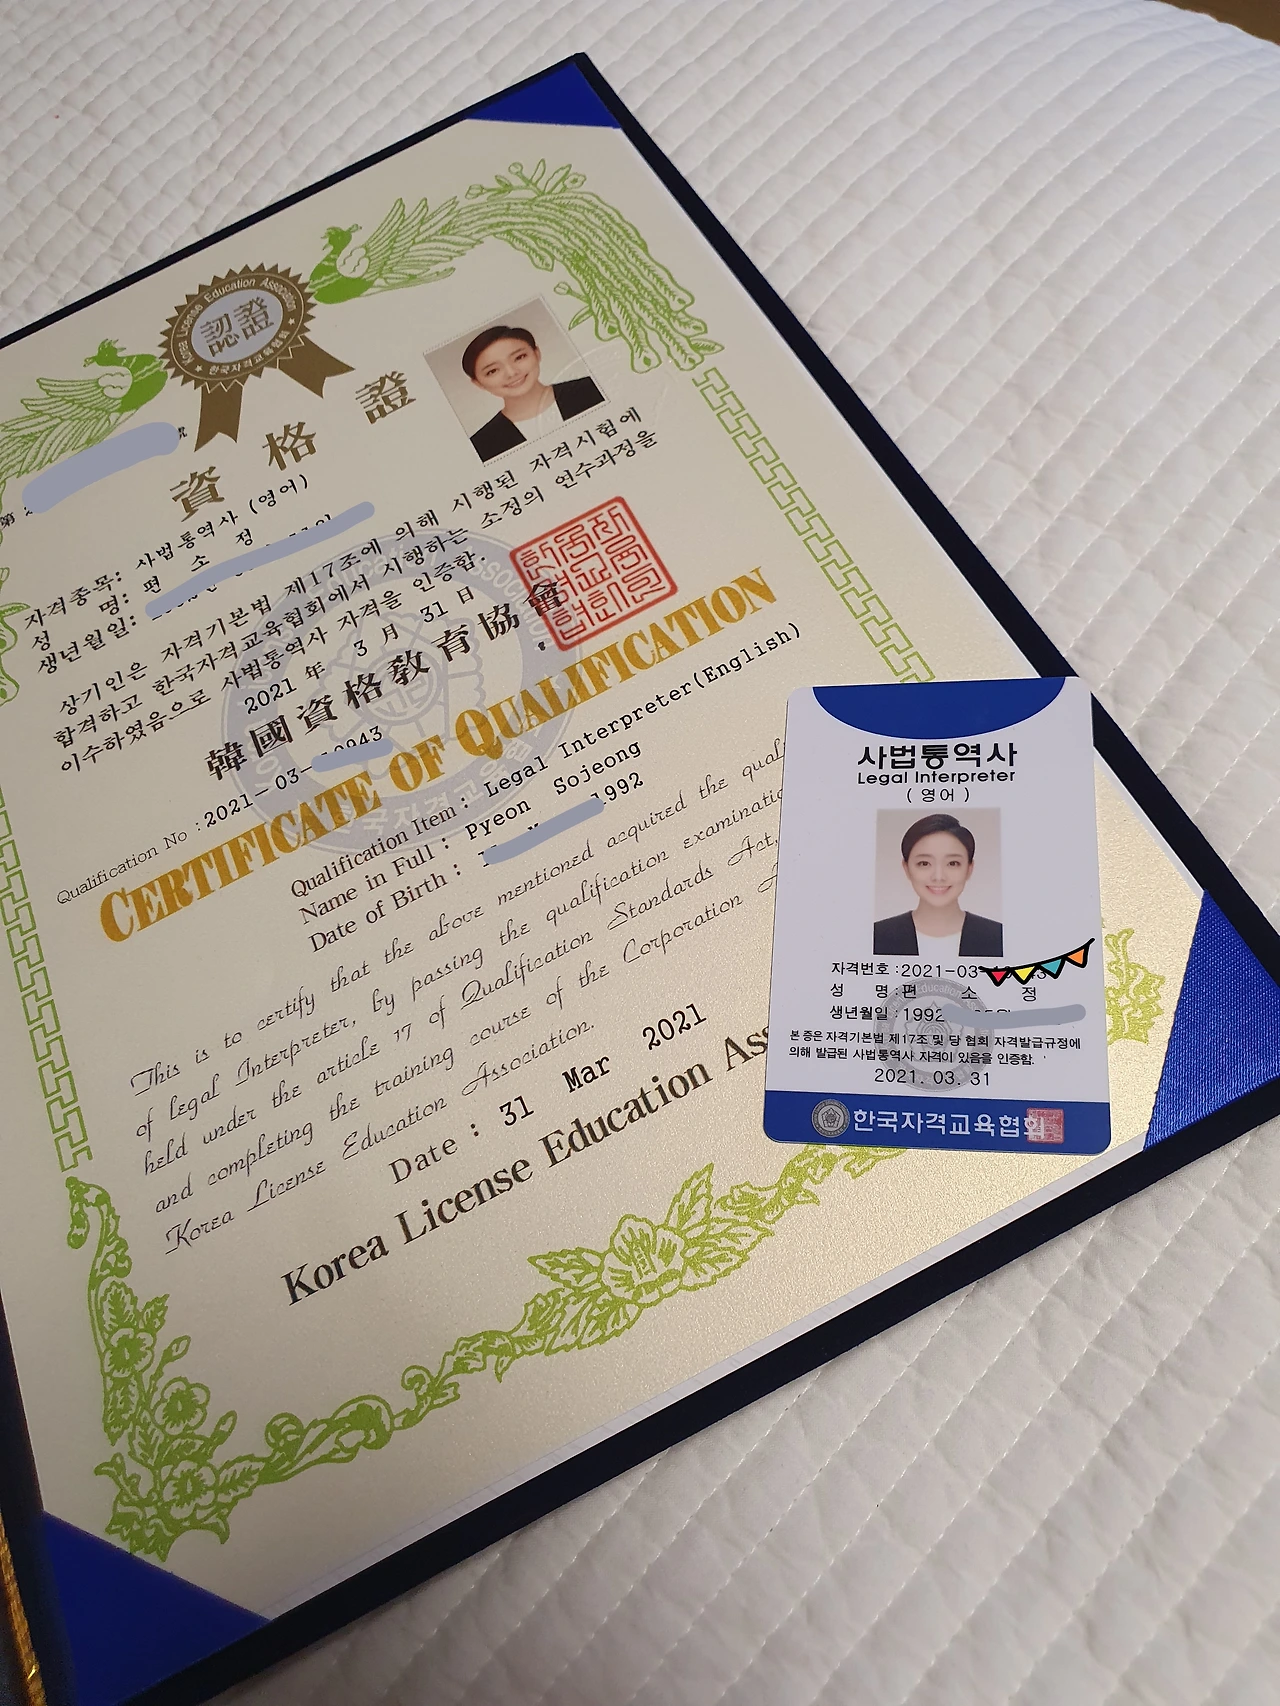 Korea License Education Association
認證
★ 한국자격교육협회 ★
第 2 號
資格證
자격종목: 사법통역사 (영어)
성 명: 편 소 정
생년월일:
상기인은 자격기본법 제17조에 의해 시행된 자격시험에
합격하고 한국자격교육협회에서 시행하는 소정의 연수과정을
이수하였음으로 사법통역사 자격을 인증함.
2021 年 3 月 31 日
韓國資格敎育協會
Qualification No : 2021-03-
CERTIFICATE OF QUALIFICATION
Qualification Item : Legal Interpreter(English)
Name in Full : Pyeon Sojeong
Date of Birth : 1992
This is to certify that the above mentioned acquired the
of legal Interpreter, by passing the qualification
held under the article 17 of Qualification Standards Act,
and completing the training course of the Corporation
Korea License Education Association.
Date : 31 Mar 2021
Korea License Education
사법통역사
Legal Interpreter
( 영어 )
자격번호 :2021-03-
성 명 :편 소 정
생년월일 :1992
본 증은 자격기본법 제17조 및 당 협회 자격발급규정에
의해 발급된 사법통역사 자격이 있음을 인증함.
2021. 03. 31
한국자격교육협회